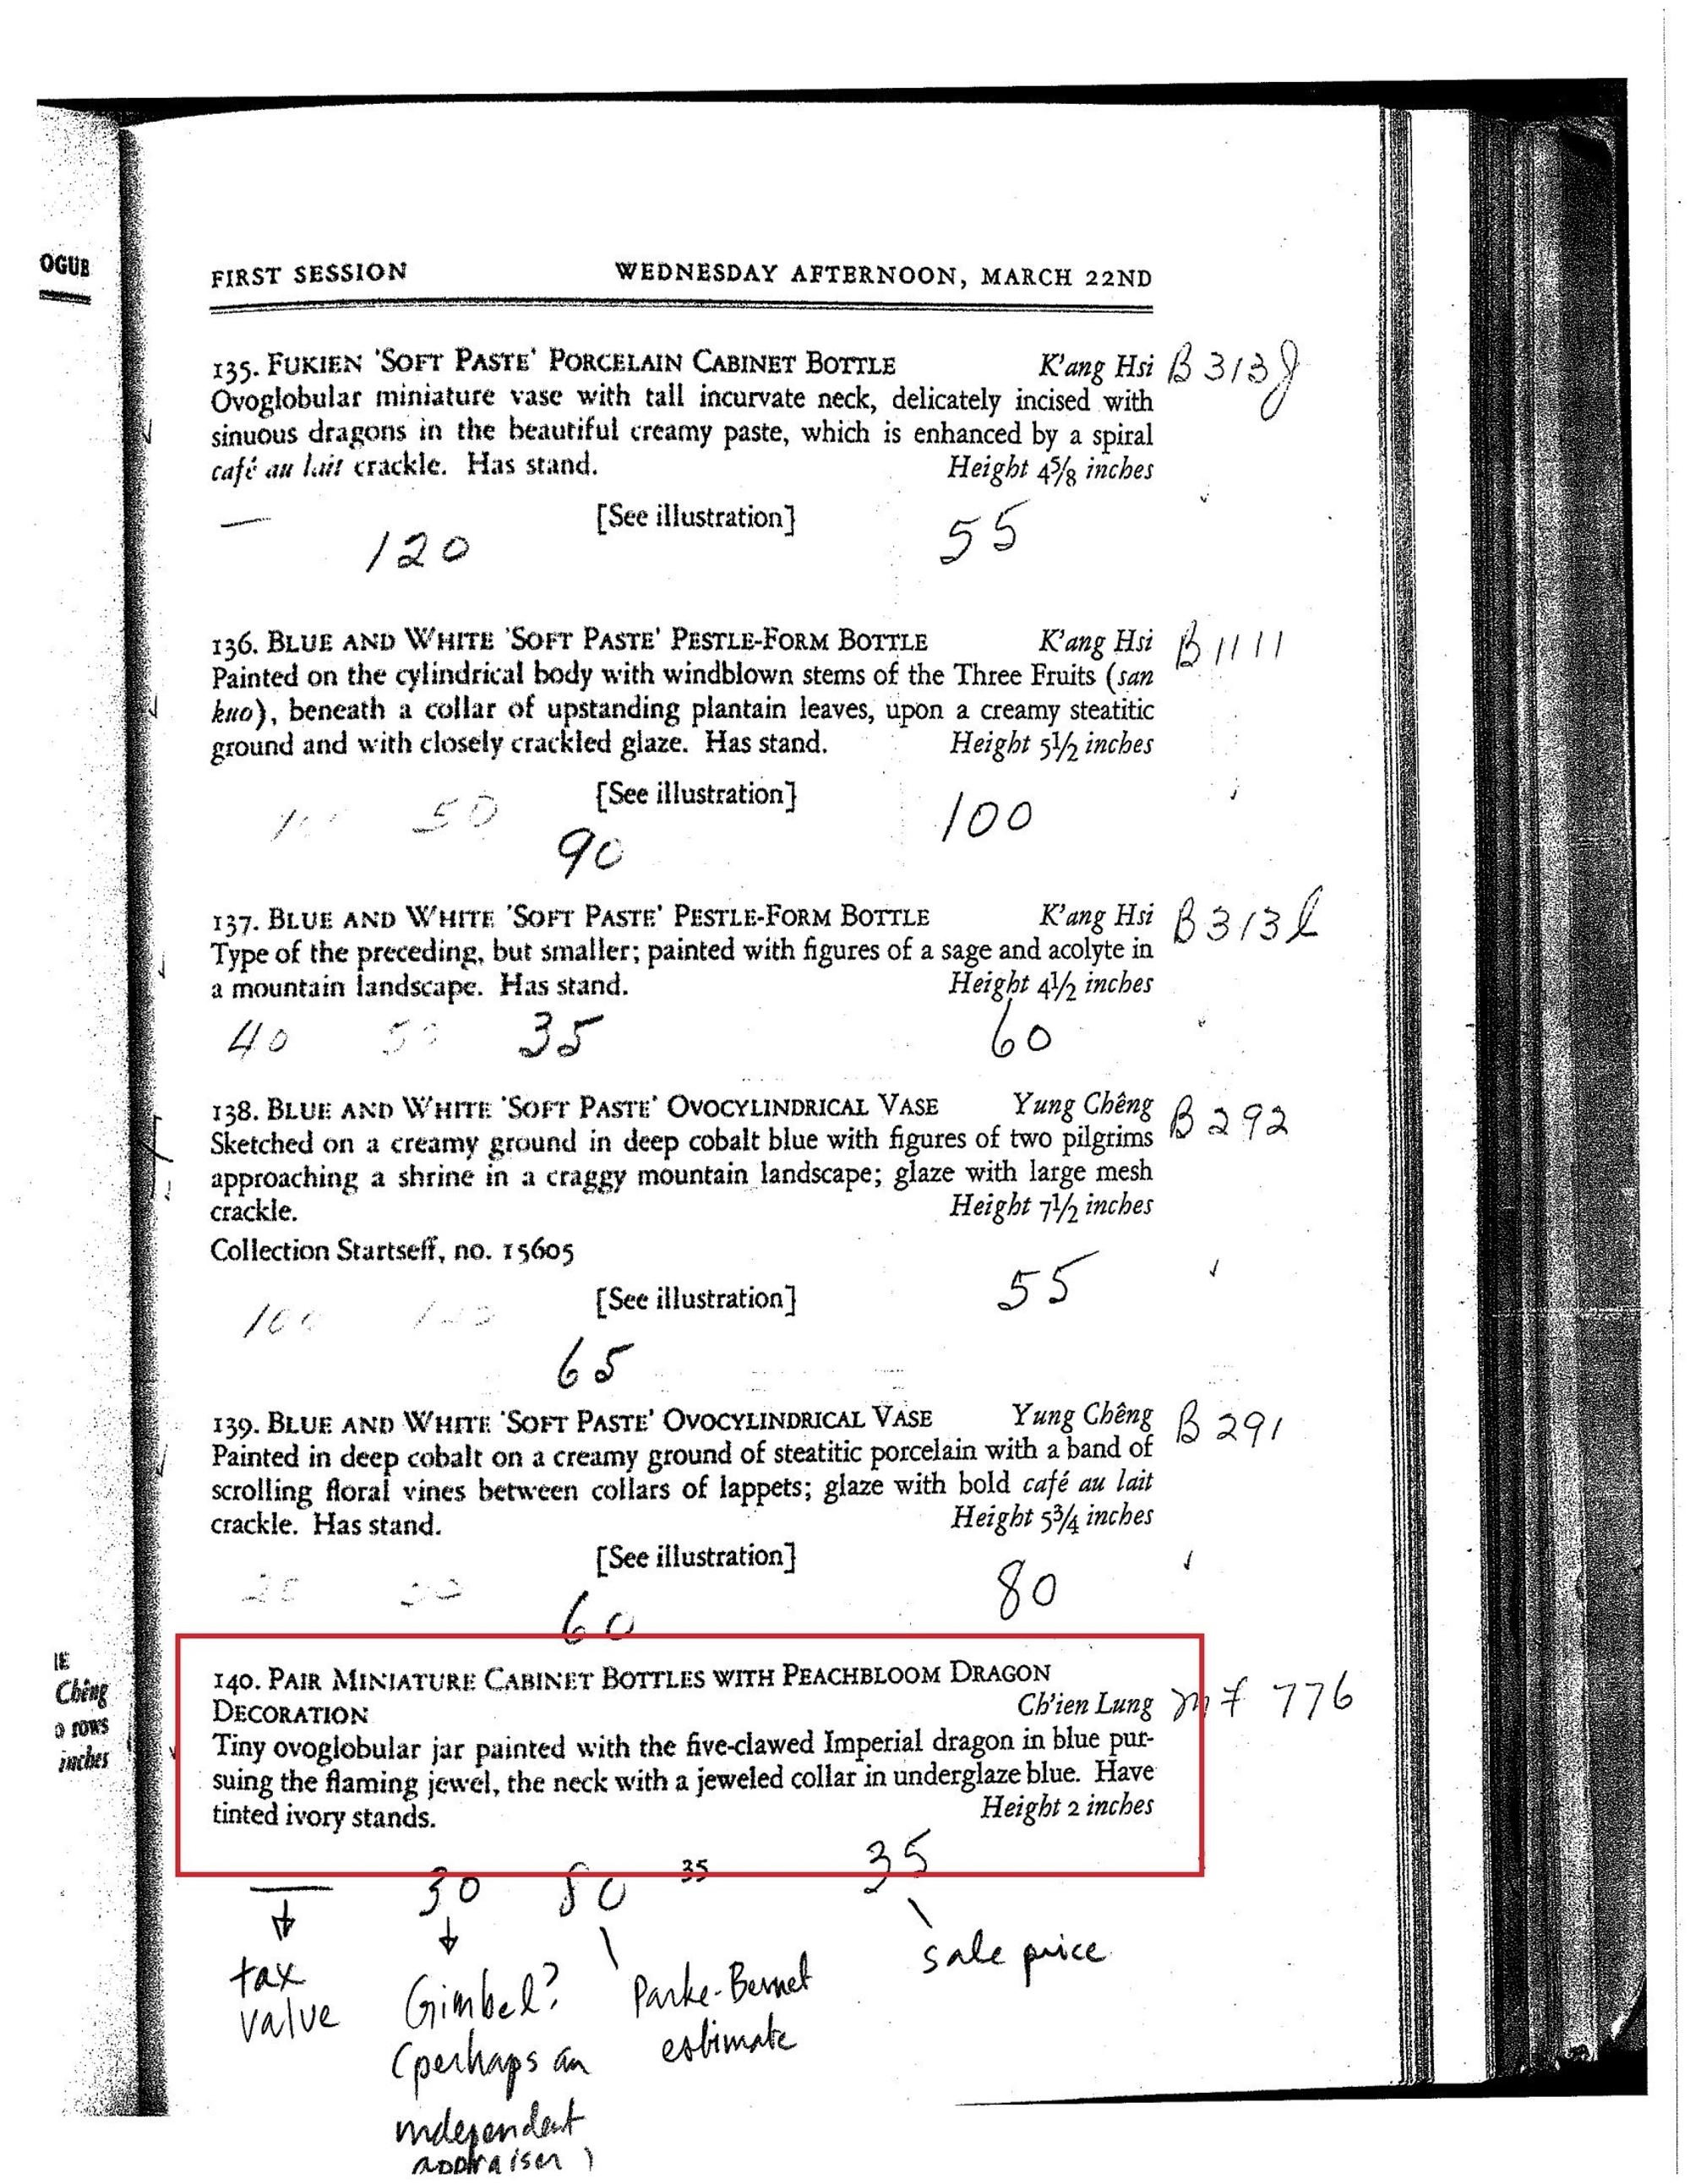 OGUE
FIRST SESSION WEDNESDAY AFTERNOON, MARCH 22ND
135. FUKIEN 'SOFT PASTE' PORCELAIN CABINET BOTTLE K'ang Hsi B313j
Ovoglobular miniature vase with tall incurvate neck, delicately incised with
sinuous dragons in the beautiful creamy paste, which is enhanced by a spiral
café au lait crackle. Has stand. Height 4⅝ inches
[See illustration]
— 120 55
136. BLUE AND WHITE 'SOFT PASTE' PESTLE-FORM BOTTLE K'ang Hsi B1111
Painted on the cylindrical body with windblown stems of the Three Fruits (san
kuo), beneath a collar of upstanding plantain leaves, upon a creamy steatitic
ground and with closely crackled glaze. Has stand. Height 5½ inches
[See illustration]
50 100
90
137. BLUE AND WHITE 'SOFT PASTE' PESTLE-FORM BOTTLE K'ang Hsi B313l
Type of the preceding, but smaller; painted with figures of a sage and acolyte in
a mountain landscape. Has stand. Height 4½ inches
40 35 60
138. BLUE AND WHITE 'SOFT PASTE' OVOCYLINDRICAL VASE Yung Chêng B292
Sketched on a creamy ground in deep cobalt blue with figures of two pilgrims
approaching a shrine in a craggy mountain landscape; glaze with large mesh
crackle. Height 7½ inches
Collection Startseff, no. 15605
[See illustration]
100 55
65
139. BLUE AND WHITE 'SOFT PASTE' OVOCYLINDRICAL VASE Yung Chêng B291
Painted in deep cobalt on a creamy ground of steatitic porcelain with a band of
scrolling floral vines between collars of lappets; glaze with bold café au lait
crackle. Has stand. Height 5¾ inches
[See illustration]
80
60
IE
Chêng
o rows
inches
140. PAIR MINIATURE CABINET BOTTLES WITH PEACHBLOOM DRAGON
DECORATION Ch'ien Lung 776
Tiny ovoglobular jar painted with the five-clawed Imperial dragon in blue pur-
suing the flaming jewel, the neck with a jeweled collar in underglaze blue. Have
tinted ivory stands. Height 2 inches
— 50 80 35 35
tax
value
Gimbel?
(perhaps an
independent
appraiser)
Parke-Bernet
estimate
sale price